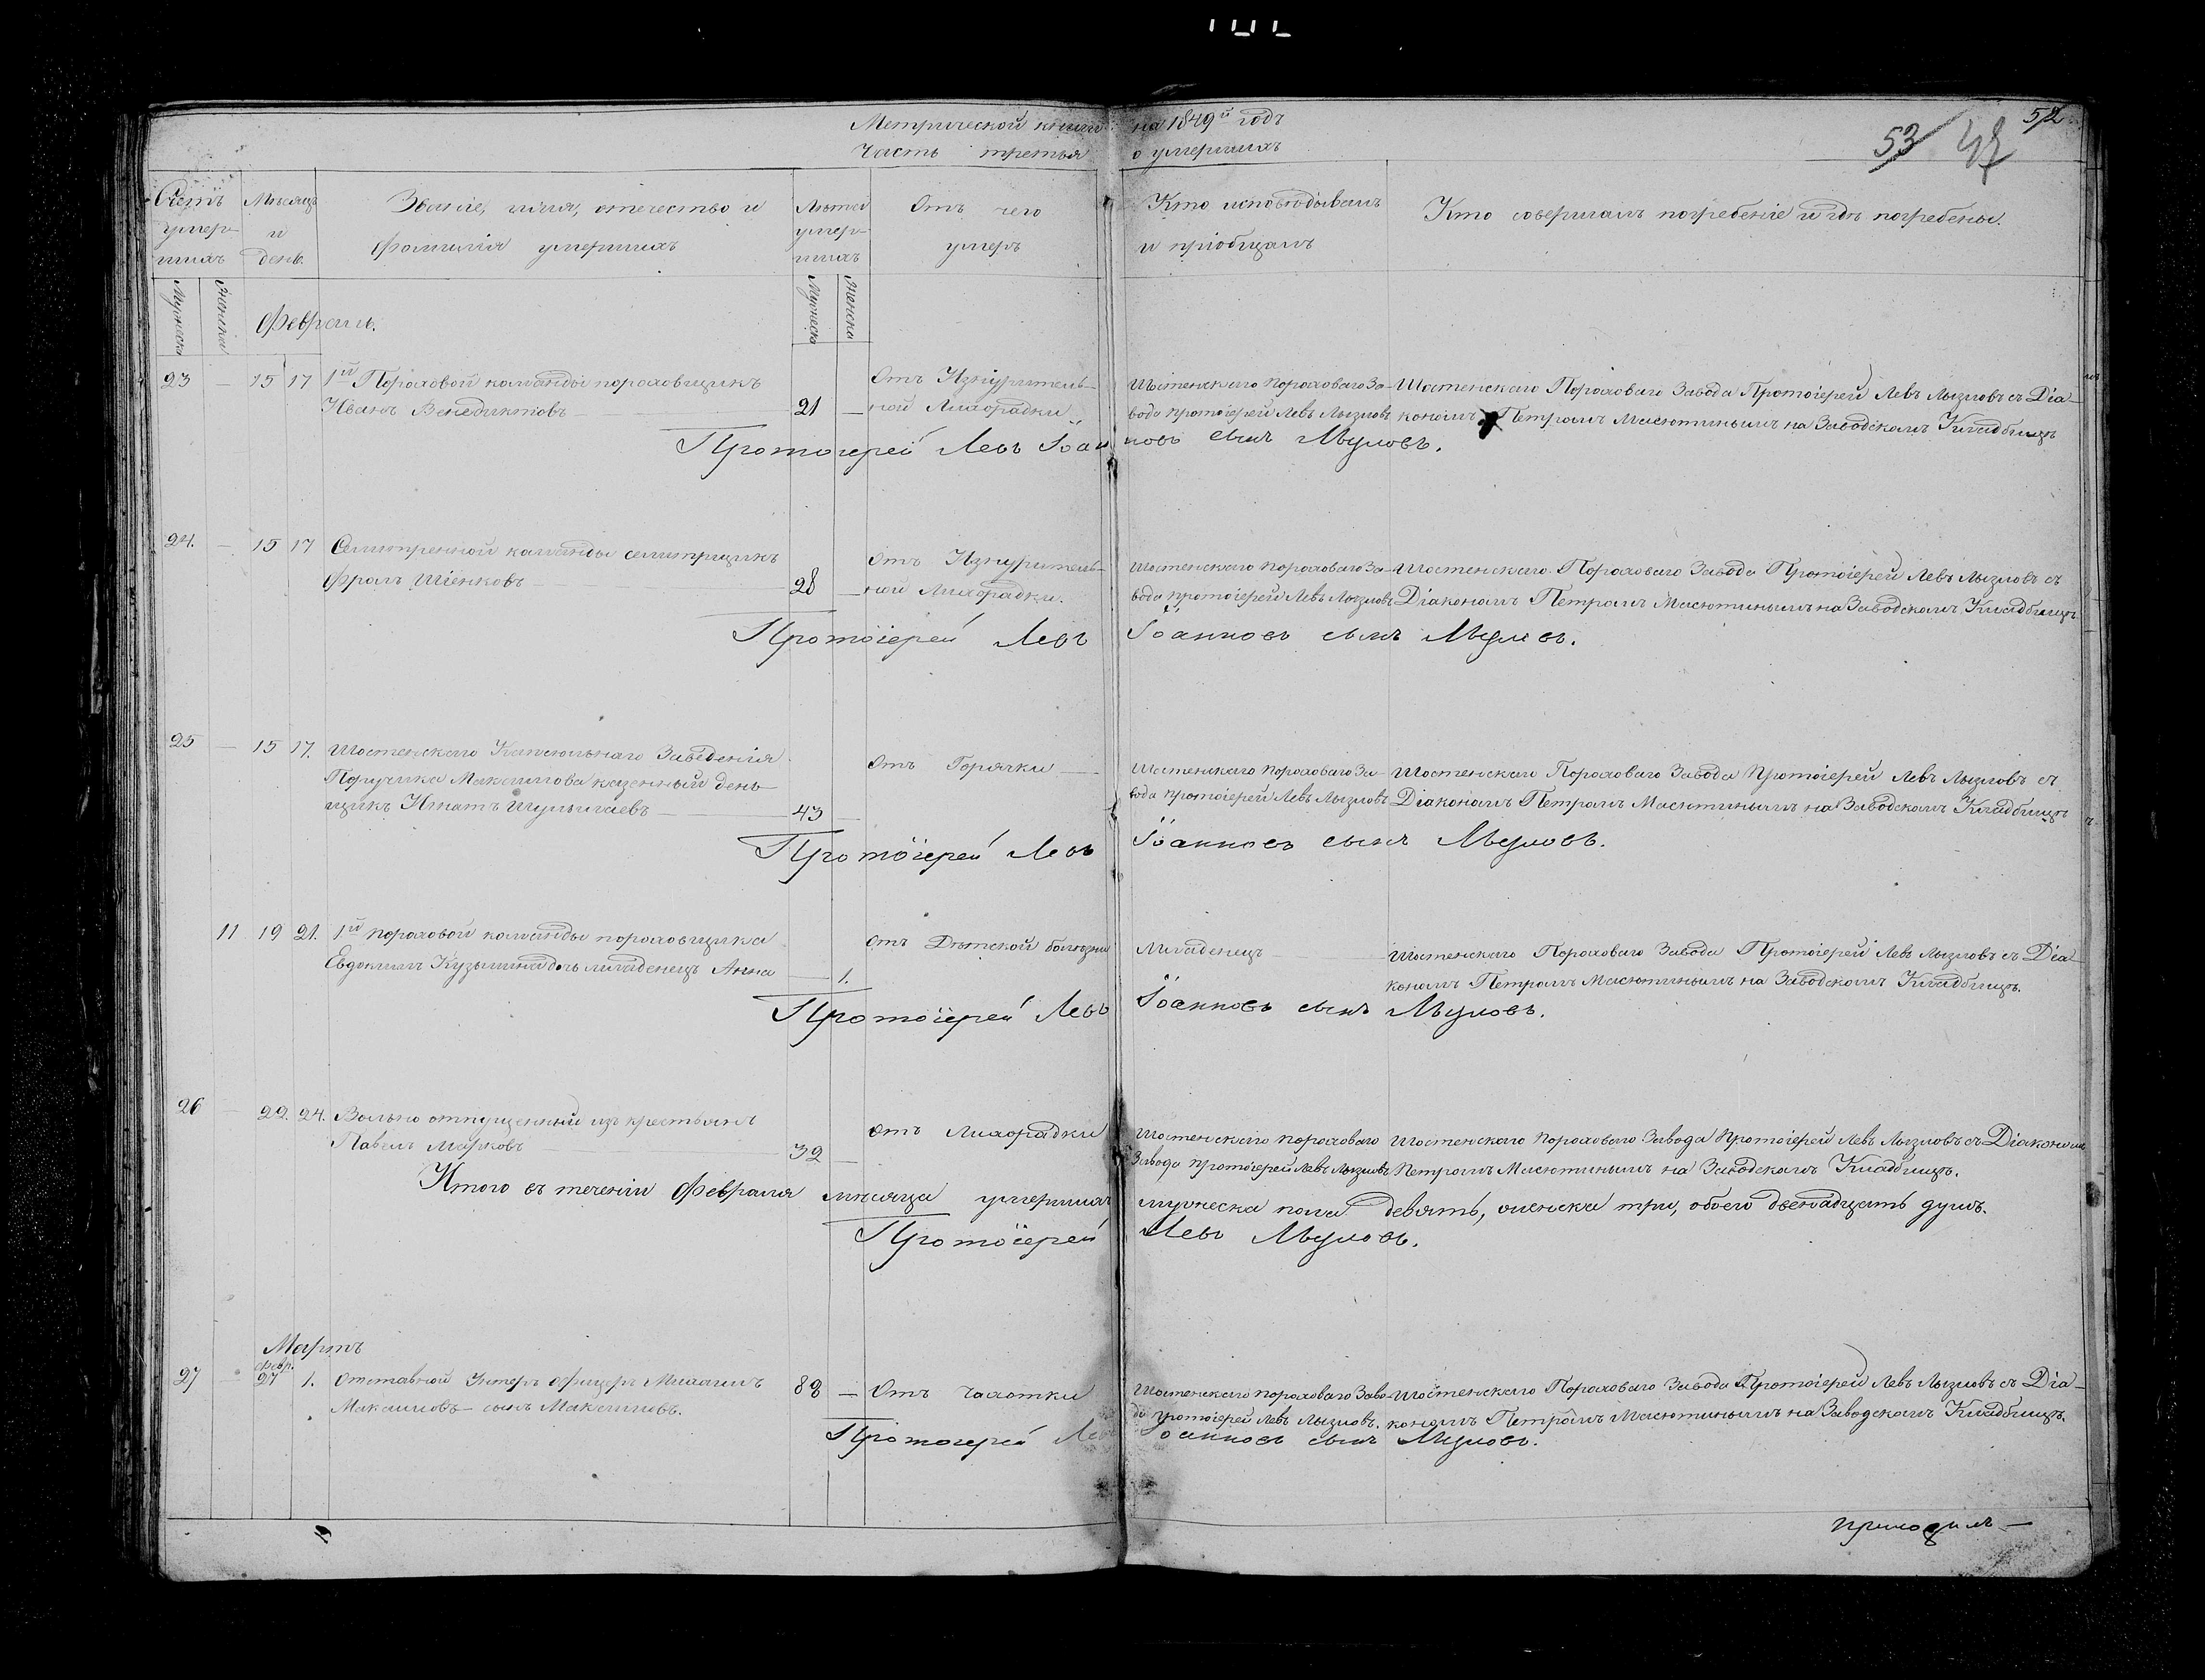 Метрической книги на 1849й годъ
Часть третья о умершихъ
52
53 47
Счетъ умер-шихъ
Мѣсяцъ и день.
Званіе, имя, отечество и фамилія умершихъ
Лѣта умер-шихъ
Отъ чего умеръ
Кто исповѣдывалъ и пріобщалъ
Кто совершалъ погребеніе и гдѣ погребены.
Мужеска Женска
Мужеска Женска
Февраль.
23 — 15 17 1й Пороховой команды пороховщикъ
Иванъ Венедиктовъ — 21 —
Отъ Изнурительной Лихорадки
Шостенскаго Пороховаго За-
вода Протоіерей Левъ Лызловъ
Шостенскаго Пороховаго Завода Протоіерей Левъ Лызловъ съ Діа-
кономъ Петромъ Масютинымъ на Заводскомъ Кладбищѣ
Протоіерей Левъ Іоанновъ сынъ Лызловъ.
24. — 15 17 Селитренной команды селитрщикъ
Фролъ — 28 —
Отъ Изнуритель-
ной Лихорадки.
Шостенскаго Пороховаго За-
вода Протоіерей Левъ Лызловъ
Шостенскаго Пороховаго Завода Протоіерей Левъ Лызловъ съ
Діакономъ Петромъ Масютинымъ на Заводскомъ Кладбищѣ
Протоіерей Левъ Іоанновъ сынъ Лызловъ.
25 — 15 17. Шостенскаго Капсюльнаго Заведенія
Поручика Максимова казенный день-
щикъ Игнатъ — 43 —
Отъ Горячки —
Шостенскаго Пороховаго За-
вода Протоіерей Левъ Лызловъ
Шостенскаго Пороховаго Завода Протоіерей Левъ Лызловъ съ
Діакономъ Петромъ Масютинымъ на Заводскомъ Кладбищѣ
Протоіерей Левъ Іоанновъ сынъ Лызловъ.
11 19 21. 1й пороховой команды пороховщика
Евдокима Кузьмина дочь младенецъ Анна — 1.
Отъ Дѣтской болѣзни
Младенецъ —
Шостенскаго Пороховаго Завода Протоіерей Левъ Лызловъ съ Діа-
кономъ Петромъ Масютинымъ на Заводскомъ Кладбищѣ.
Протоіерей Левъ Іоанновъ сынъ Лызловъ.
26 — 22. 24. Вольно отпущенный изъ крестьянъ
Павелъ Марковъ — 32 —
Отъ Лихорадки
Шостенскаго Пороховаго
Завода Протоіерей Левъ Лызловъ
Шостенскаго Пороховаго Завода Протоіерей Левъ Лызловъ съ Діакономъ
Петромъ Масютинымъ на Заводскомъ Кладбищѣ.
Итого въ теченіи Февраля мѣсяца умершихъ мужеска пола девять, женска три, обоего двенадцать душъ.
Протоіерей Левъ Лызловъ.
Мартъ
Февр.
27 — 27 1. Отставной Унтеръ Офицеръ Михаилъ
Максимовъ сынъ Максимовъ. 82 —
Отъ Чахотки
Шостенскаго Пороховаго Заво-
да Протоіерей Левъ Лызловъ.
Шостенскаго Пороховаго Завода Протоіерей Левъ Лызловъ съ Діа-
кономъ Петромъ Масютинымъ на Заводскомъ Кладбищѣ.
Протоіерей Левъ Іоанновъ сынъ Лызловъ.